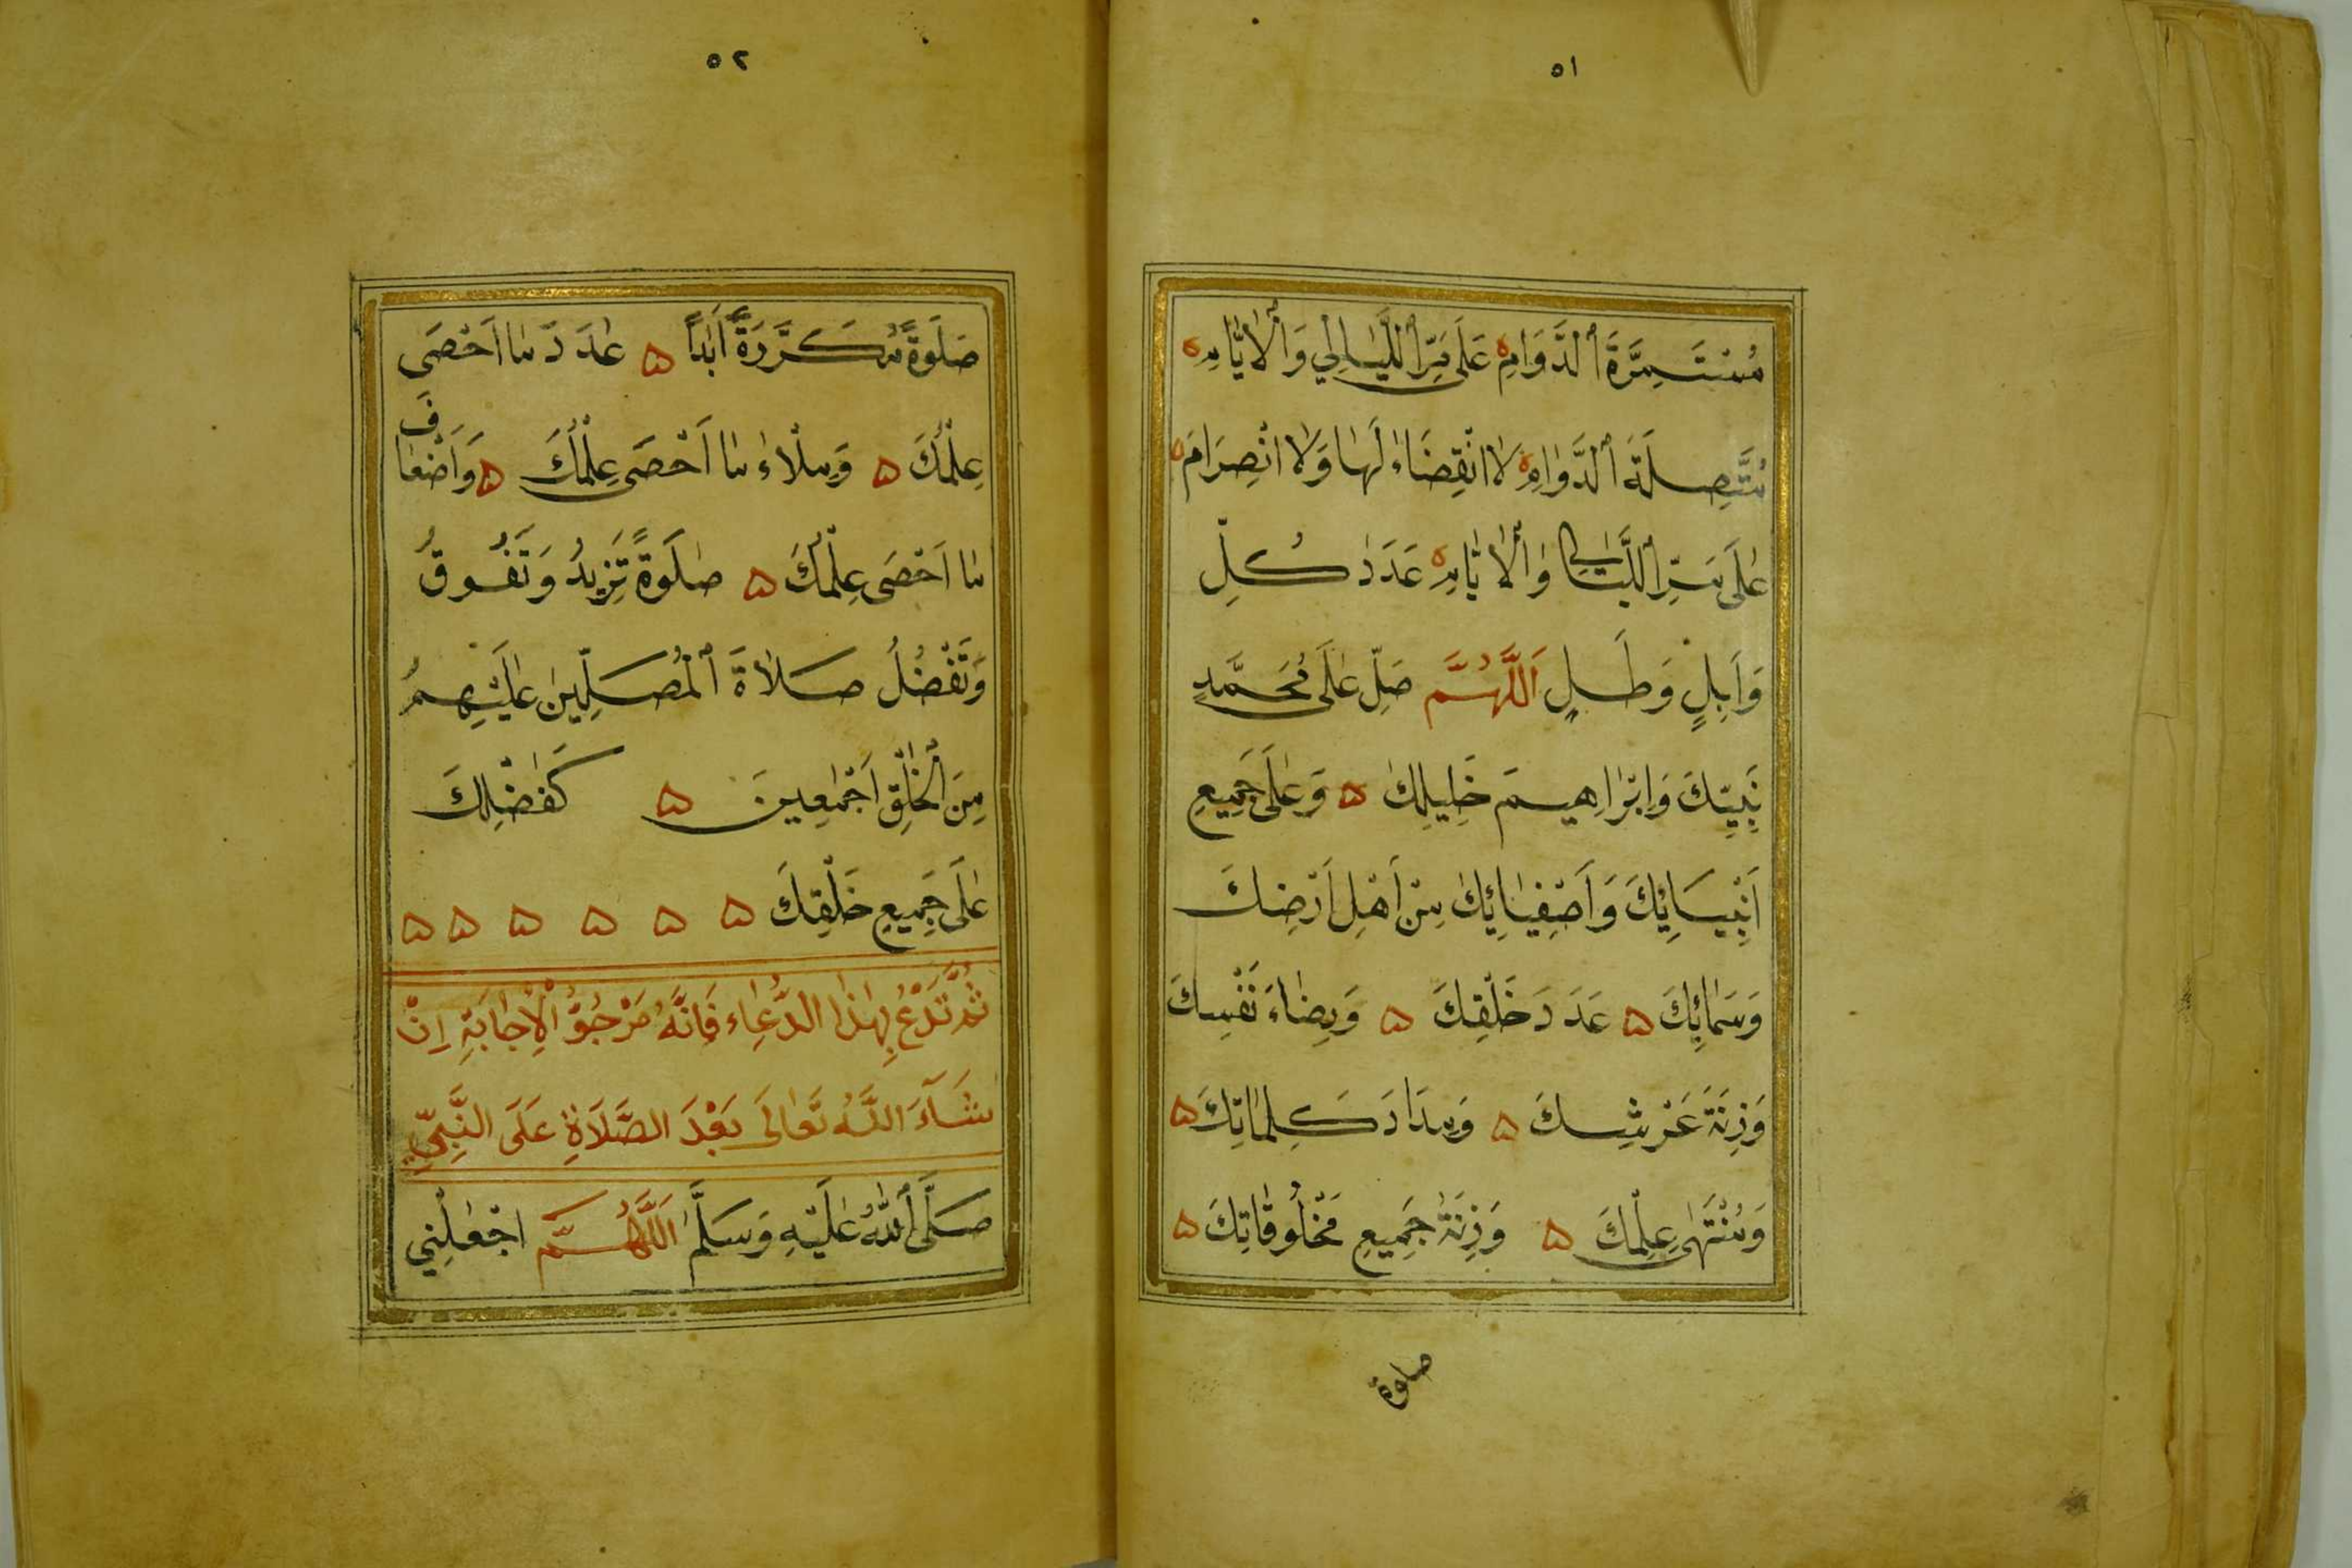 ٥١
مُسْتَمِرَّةَ الدَّوَامِ عَلَى مَرِّ اللَّيَالِي وَالْاَيَّامِ
مُتَّصِلَةَ الدَّوَامِ لَا انْقِضَاءَ لَهَا وَلَا انْصِرَامَ
عَلَى مَرِّ اللَّيَالِي وَالْاَيَّامِ عَدَدَ كُلِّ
وَابِلٍ وَطَلٍّ اَللَّهُمَّ صَلِّ عَلَى مُحَمَّدٍ
نَبِيِّكَ وَاِبْرَاهِيمَ خَلِيلِكَ ۵ وَعَلَى جَمِيعِ
اَنْبِيَائِكَ وَاَصْفِيَائِكَ مِنْ اَهْلِ اَرْضِكَ
وَسَمَائِكَ ۵ عَدَدَ خَلْقِكَ ۵ وَرِضَاءَ نَفْسِكَ
وَزِنَةَ عَرْشِكَ ۵ وَمِدَادَ كَلِمَاتِكَ ۵
وَمُنْتَهَى عِلْمِكَ ۵ وَزِنَةَ جَمِيعِ مَخْلُوقَاتِكَ ۵
صلوة
٥٢
صَلَوةً مُكَرَّرَةً اَبَدًا ۵ عَدَدَ مَا اَحْصَى
عِلْمُكَ ۵ وَمِلْاءَ مَا اَحْصَى عِلْمُكَ ۵ وَاَضْعَافَ
مَا اَحْصَى عِلْمُكَ ۵ صَلَوةً تَزِيدُ وَتَفُوقُ
وَتَفْضُلُ صَلَاةَ الْمُصَلِّينَ عَلَيْهِمْ
مِنَ الْخَلْقِ اَجْمَعِينَ ۵ كَفَضْلِكَ
عَلَى جَمِيعِ خَلْقِكَ ۵ ۵ ۵ ۵ ۵ ۵
ثُمَّ تَدْعُ بِهَذَا الدُّعَاءِ فَاِنَّهُ مَرْجُوُّ الْاِجَابَةِ اِنْ
شَآءَ اللّٰهُ تَعَالَى بَعْدَ الصَّلَاةِ عَلَى النَّبِيِّ
صَلَّى اللّٰهُ عَلَيْهِ وَسَلَّمَ اَللَّهُمَّ اجْعَلْنِي